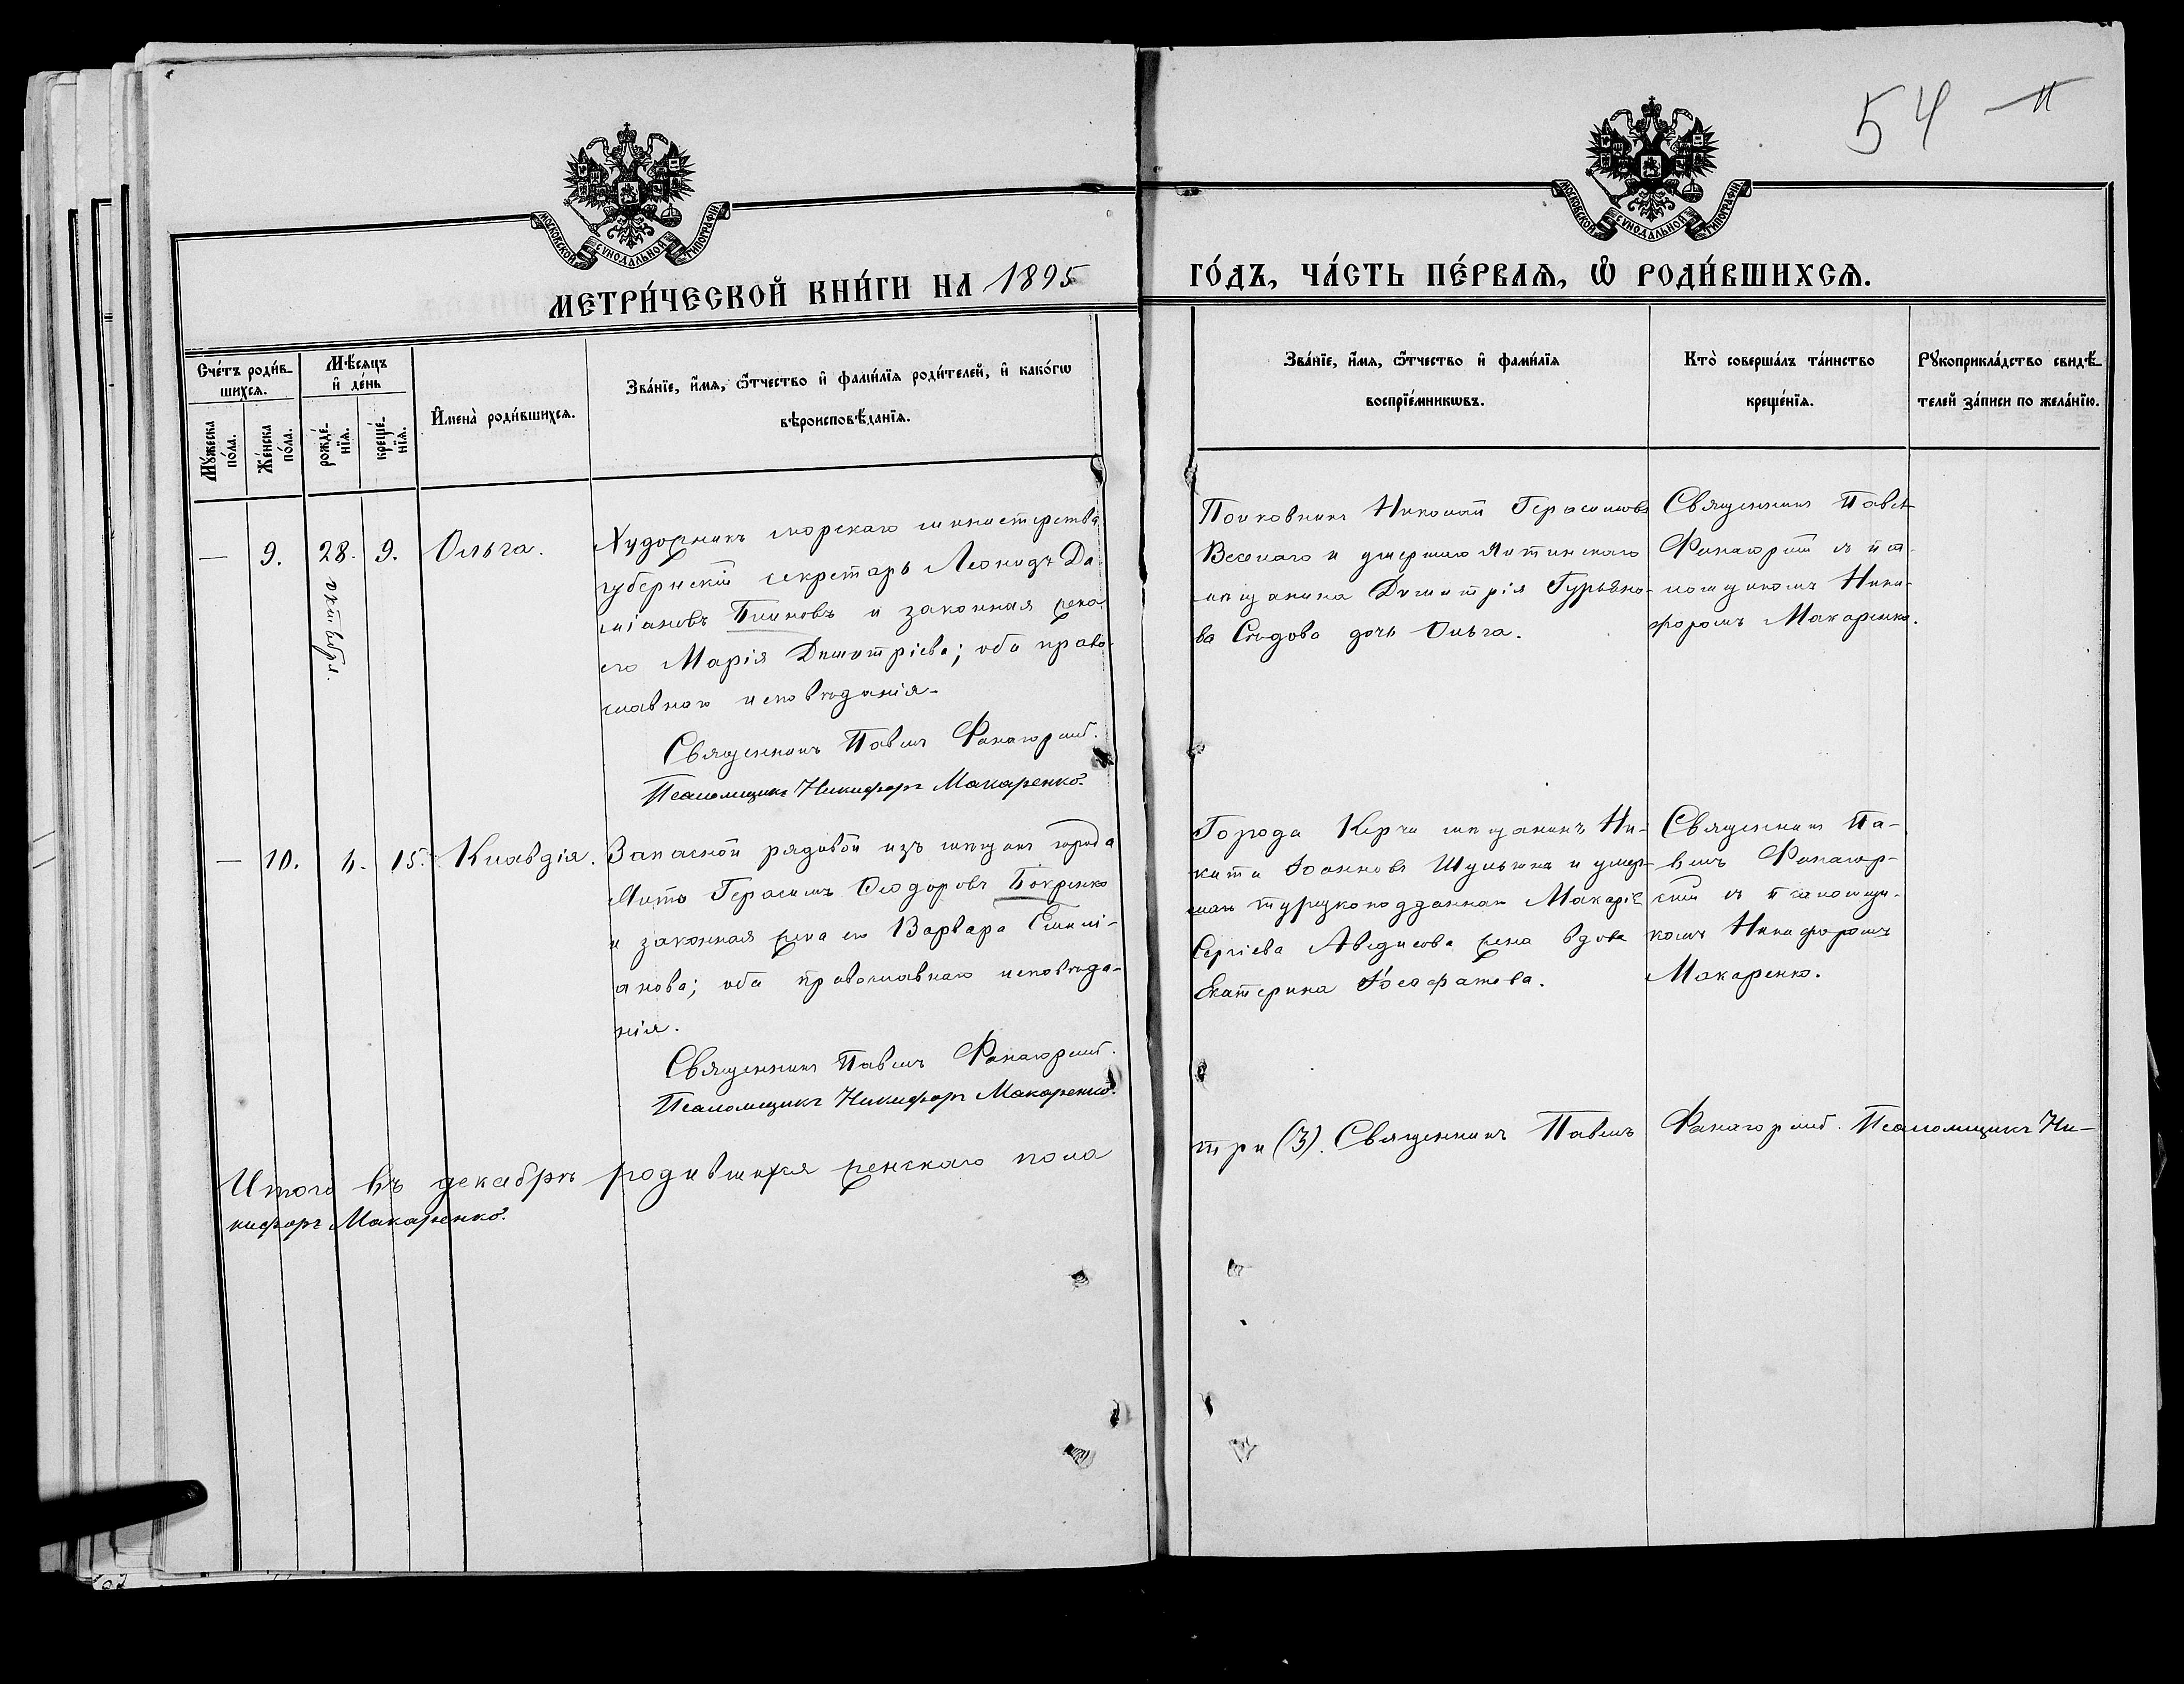 54
МОСКОВСКОЙ СѴНОДАЛЬНОЙ ТИПОГРАФІИ
МОСКОВСКОЙ СѴНОДАЛЬНОЙ ТИПОГРАФІИ
МЕТРИ́ЧЕСКОЙ КНИ́ГИ НА 1895
ГО́ДЪ, ЧА́СТЬ ПЕ́РВАЯ, Ѿ РОДИ́ВШИХСЯ.
Сче́тъ роди́в-
шихся.
Мѣ́сяцъ
и҆ де́нь
Мꙋ́жеска
по́ла.
Же́нска
по́ла.
рожде́-
нїя.
креще́-
нїя.
И҆мена̀ роди́вшихся.
Зва́нїе, и҆́мя, ѻ҆́тчество и҆ фами́лїя роди́телей, и҆ како́гѡ
вѣроисповѣ́данїя.
Зва́нїе, и҆́мя, ѻ҆́тчество и҆ фами́лїя
воспрїе́мникѡвъ.
Кто̀ соверша́лъ та́инство
креще́нїя.
Рꙋкоприкла́дство свидѣ́-
телей за́писи по жела́нїю.
— 9. 28. 9. Ольга.
октября.
Художникъ морскаго министерства
губернскій секретарь Леонидъ Да-
міановъ Блиновъ и законная жена
его Марія Димитріева; оба право-
славнаго исповѣданія-
Священникъ Павелъ Фанагорскій.
Псаломщикъ Никифоръ Макаренко.
Полковникъ Николай Герасимовъ
Веселаго и умершаго Ялтинскаго
мѣщанина Димитрія Гурьяно-
ва Сѣдова дочь Ольга.
Священникъ Павелъ
Фанагорскій съ пса-
ломщикомъ Ники-
форомъ Макаренко.
— 10. 6. 15. Клавдія.
Запасной рядовой изъ мѣщанъ города
Ялты Герасимъ Ѳеодоровъ Бокренко
и законная жена его Варвара Симеі-
анова; оба православнаго исповѣда-
нія.
Священникъ Павелъ Фанагорскій.
Псаломщикъ Никифоръ Макаренко.
Города Керчи мѣщанинъ Ни-
кита Іоанновъ Шульгинъ и умер-
шаго турецкоподданнаго Макарія
Сергіева Аведисова жена вдова
Екатерина Іоасафатова.
Священникъ Па-
велъ Фанагор-
скій съ псаломщи-
комъ Никифоромъ
Макаренко.
Итого въ декабрѣ родившихся женскаго пола
три (3). Священникъ Павелъ Фанагорскій. Псаломщикъ Ни-
кифоръ Макаренко.